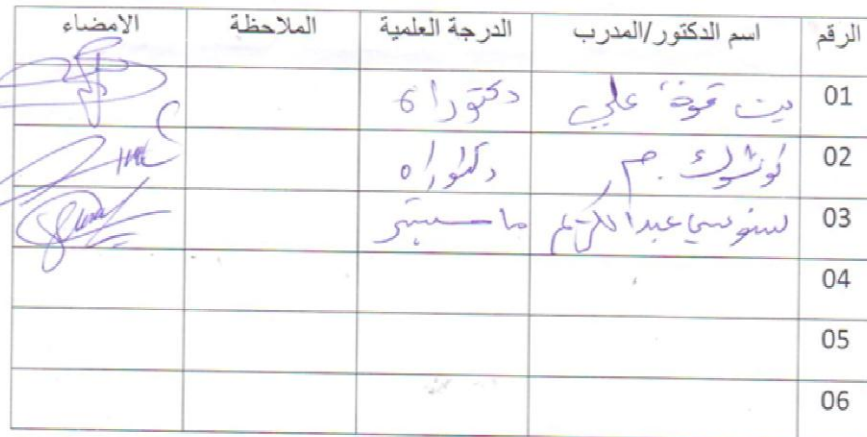 الرقم اسم الدكتور/المدرب الدرجة العلمية الملاحظة الامضاء
01 علي دكتورا
02 دكتوراه
03 سنوسي عبد الكريم ماستر
04
05
06